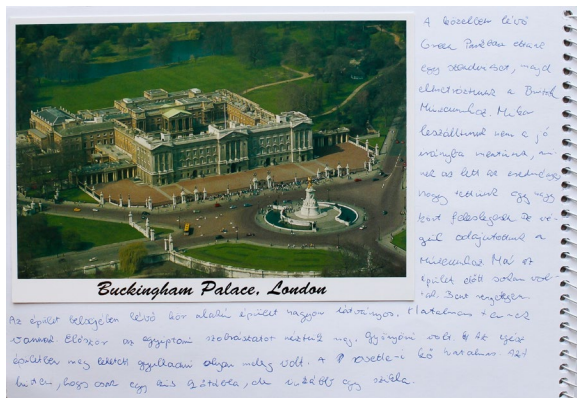 A közelben lévő
Green Parkban
egy szendvicset, majd
elmetróztunk a British
Museumhoz. Mikor
leszálltunk nem a jó
irányba mentünk,
nek az lett az eredménye
hogy tettünk egy nagy
kört feleslegesen. De vé-
gül odajutottunk a
múzeumhoz. Már az
épület előtt sokan vol-
tak. Bent rengetegen.
Buckingham Palace, London
Az épület belsejében lévő kör alakú épület nagyon látványos. Hatalmas termek
vannak. Először az egyiptomi szobrászatot néztük meg. Gyönyörű volt. Az egész
épületben meg lehetett gyulladni olyan meleg volt. A rosette-i kő hatalmas. Azt
hittem, hogy csak egy kis kőtábla, de inkább egy szikla.